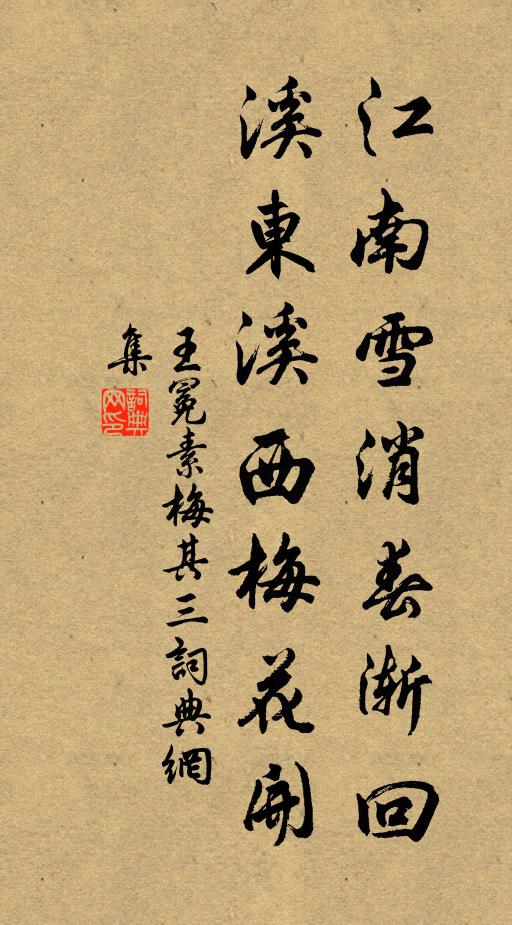 江南雪消春漸回
溪東溪西梅花開
王冕素梅其三詞典網
集
詞典
网印